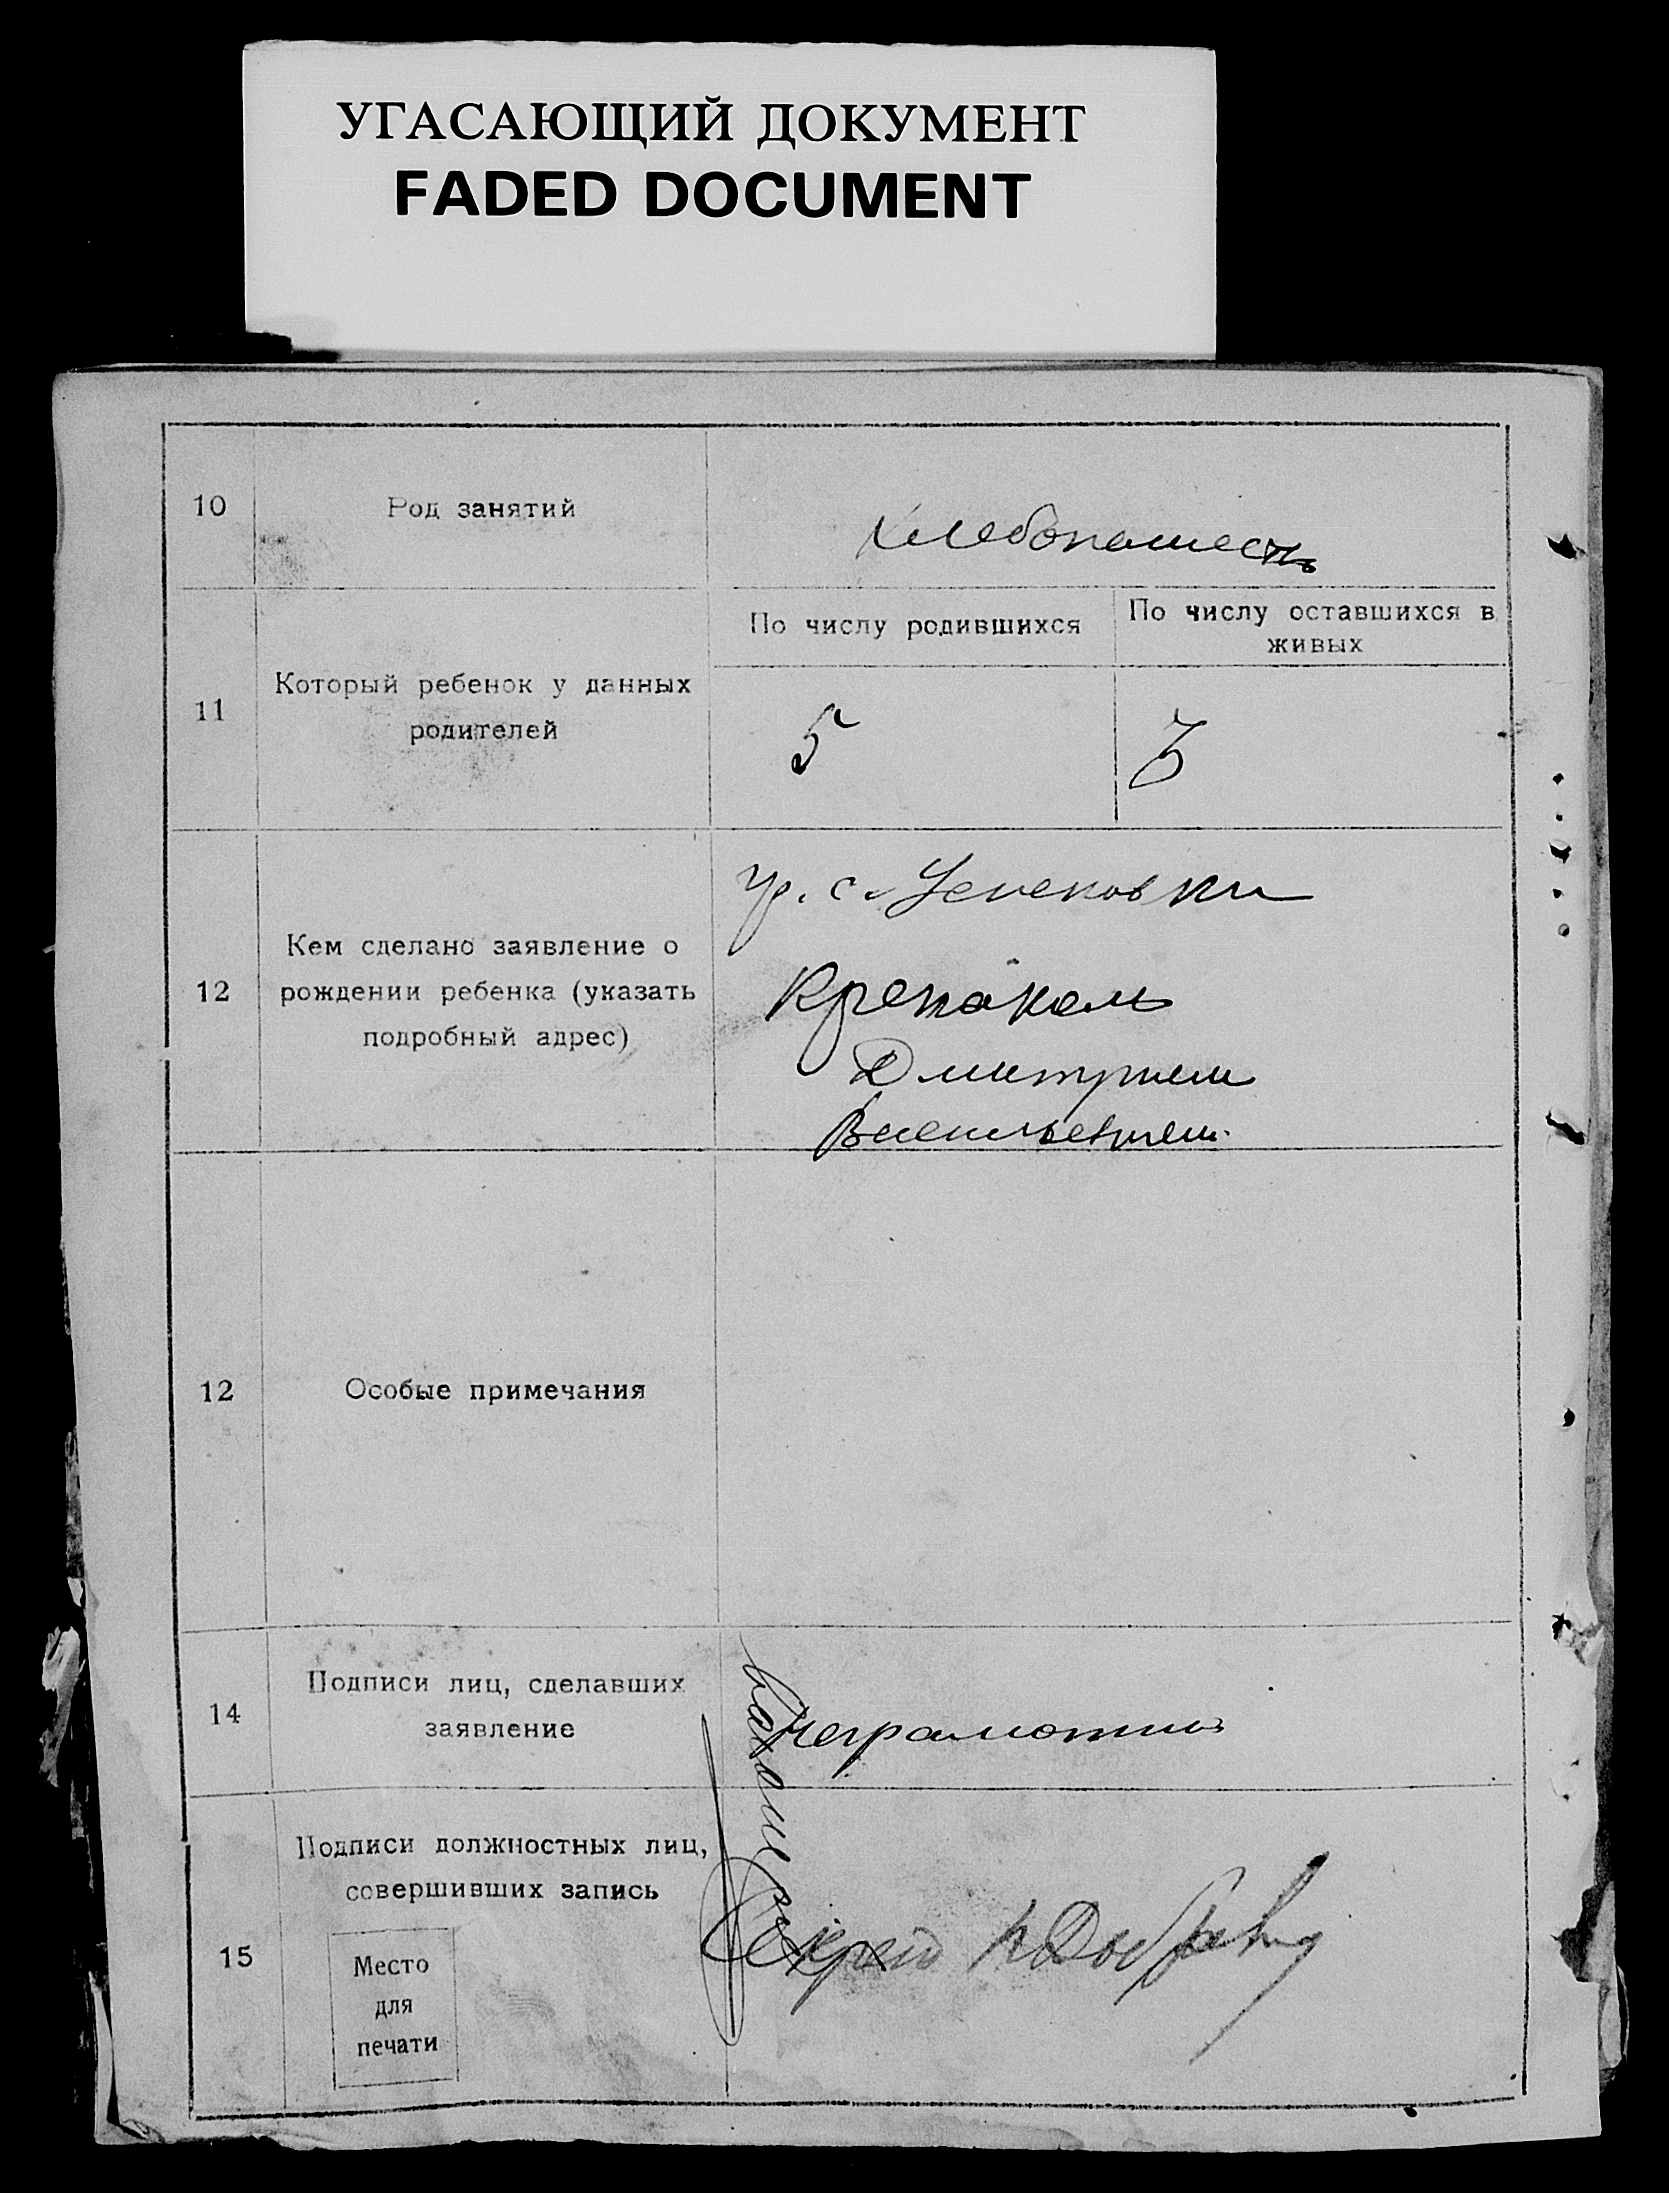 УГАСАЮЩИЙ ДОКУМЕНТ
FADED DOCUMENT
10
Род занятий
Хлебопашест
11
Который ребенок у данных
родителей
По числу родившихся
5
По числу оставшихся в
живых
12
Кем сделано заявление о
рождении ребенка (указать
подробный адрес)
гр. с.
Дмитрием
Васильевичем
12
Особые примечания
14
Подписи лиц, сделавших
заявление
неграмотный
15
Подписи должностных лиц,
совершивших запись
Место
для
печати